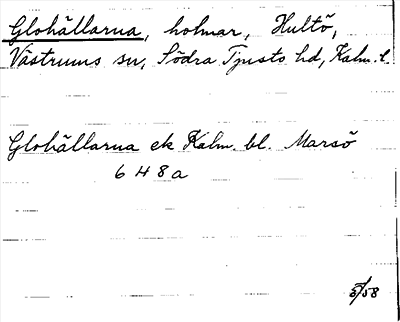 Glohällarna, holmar, Hultö,
Västrums sn, Södra Tjusts hd, Kalm. l.
Glohällarna ek Kalm. bl. Marsö
6 4 8 a
5/58